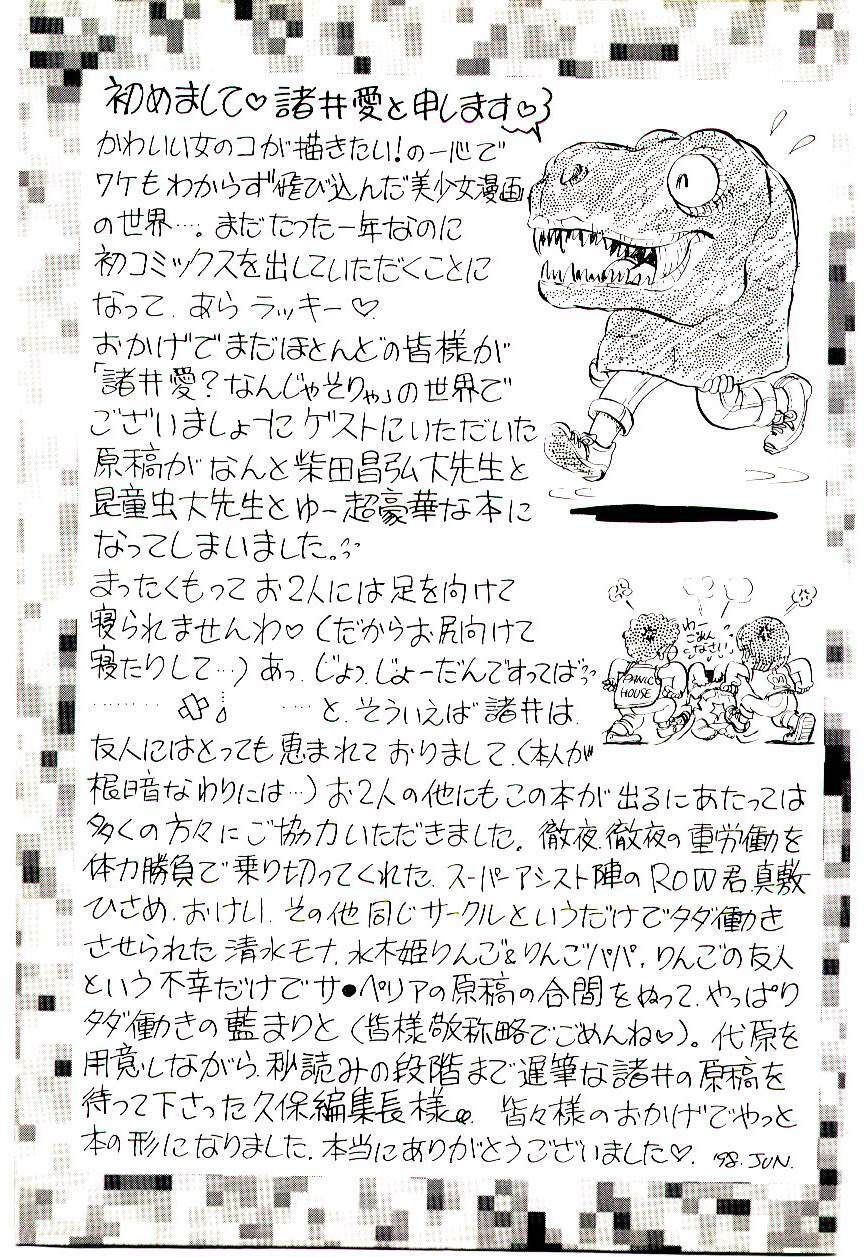 初めまして♡諸井愛と申します♡
かわいい女のコが描きたい!の一心で
ワケもわからず飛び込んだ美少女漫画
の世界…。まだたった一年なのに
初コミックスを出していただくことに
なって、あらラッキー♡
おかげでまだほとんどの皆様が
「諸井愛?なんじゃそりゃ」の世界で
ございましょーにゲストにいただいた
原稿がなんと柴田昌弘大先生と
昆童虫大先生とゆー超豪華な本に
なってしまいました。
まったくもってお2人には足を向けて
寝られませんわ♡(だからお尻向けて
寝たりして…)あっ、じょっ、じょーだんですってば
わー
ごめん
なさい
PANIC
HOUSE
……… ……と、そういえば諸井は、
友人にはとっても恵まれておりまして、(本人が
根暗なわりには…)お2人の他にもこの本が出るにあたっては
多くの方々にご協力いただきました。徹夜、徹夜の重労働を
体力勝負で乗り切ってくれた、スーパーアシスト陣のROW君、真敷
ひさめ、おけい、その他同じサークルというだけでタダ働き
させられた清水モナ、水木姫りんご&りんごパパ、りんごの友人
という不幸だけでサ●ペリアの原稿の合間をぬって、やっぱり
タダ働きの藍まりと(皆様敬称略でごめんね♡)。代原を
用意しながら、秒読みの段階まで遅筆な諸井の原稿を
待って下さった久保編集長様。皆々様のおかげでやっと
本の形になりました。本当にありがとうございました♡.
'98.JUN.